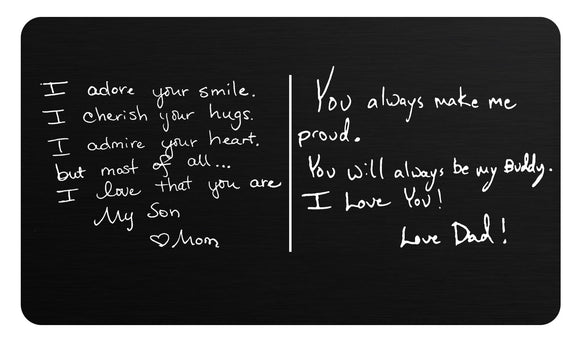 I adore your smile.
I cherish your hugs.
I admire your heart.
but most of all...
I love that you are
My Son
♡Mom
You always make me
proud.
You will always be my Buddy.
I Love You!
Love Dad!